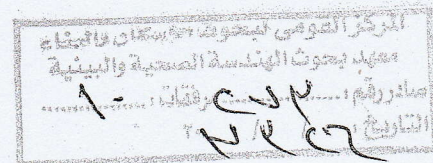 المركز القومى لبحوث الاسكان والبناء
معهد بحوث الهندسة الصحية والبيئية
صادر رقم : ٢٧٣ مرفقات : ١٠
التاريخ : ٢٦ / ٣ /